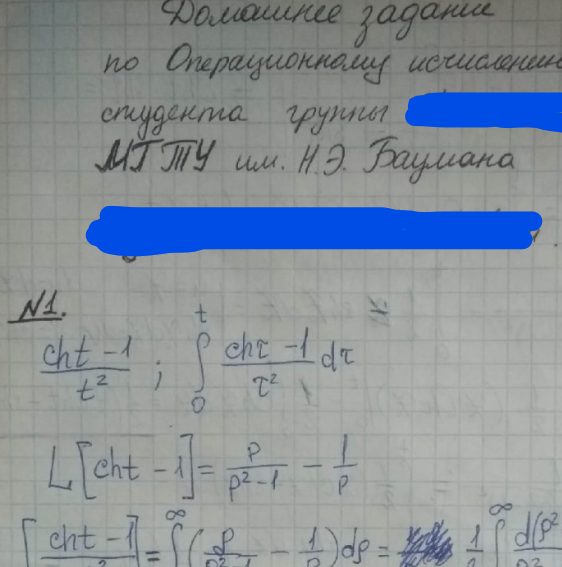 Домашнее задание
по Операционному исчислению
студента группы
МГТУ им. Н.Э. Баумана
№1.
(cht - 1)/t² ; ∫₀ᵗ (chτ - 1)/τ² dτ
L[cht - 1] = p/(p²-1) - 1/p
[cht - 1] = ∫^∞ (p - 1)dp = 1 ∫^∞ d(p²